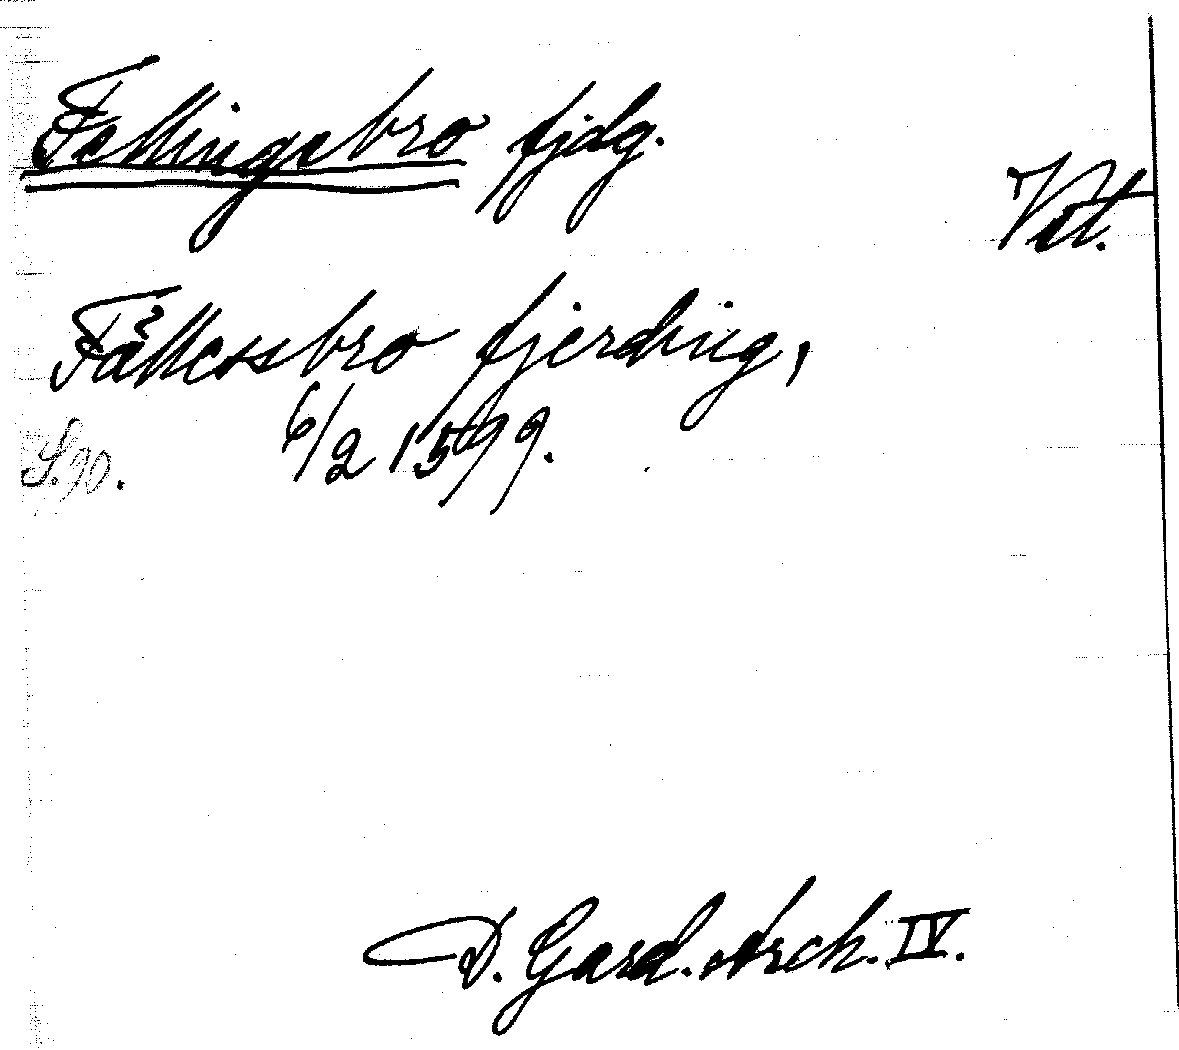 Fellingsbro fjdg.
Vst.
Fållessbro fjerding,
6/2 1599.
S. 90.
D. Gard. Arch. IV.